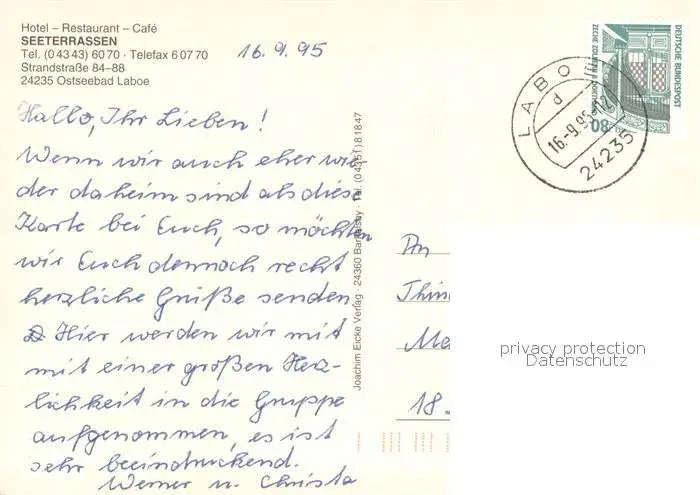 Hotel – Restaurant – Café
SEETERRASSEN
Tel. (0 43 43) 60 70 · Telefax 6 07 70
Strandstraße 84–88
24235 Ostseebad Laboe
16.9.95
Hallo, Ihr Lieben!
Wenn wir auch eher wie-
der daheim sind als diese
Karte bei Euch, so möchten
wir Euch dennoch recht
herzliche Grüße senden
Hier werden wir mit
mit einer großen Herz-
lichkeit in die Gruppe
aufgenommen, es ist
sehr beeindruckend.
Werner u. Christa
Joachim Eicke Verlag · 24360 Barkelsby · Tel. (0 43 51) 8 18 47
LABO
d
16.-9.95-12
24235
DEUTSCHE BUNDESPOST
ZECHE ZOLLERN II DORTMUND
80
An
18.
privacy protection
Datenschutz